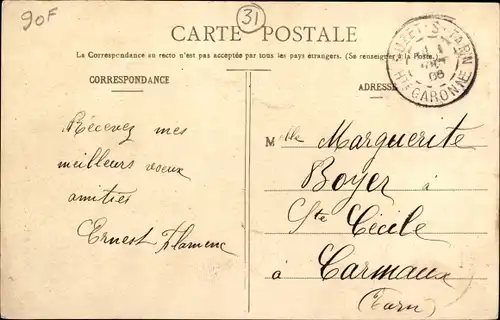 90F
31
CARTE POSTALE
La Correspondance au recto n'est pas acceptée par tous les pays étrangers. (Se renseigner à la Poste.)
CORRESPONDANCE
ADRESSE
S-TARN
06
Hte GARONNE
Recevez mes
meilleurs voeux
amitiés
Ernest Flamenc
Mlle Marguerite
Boyer à
Ste Cécile
à Carmaux
(Tarn)